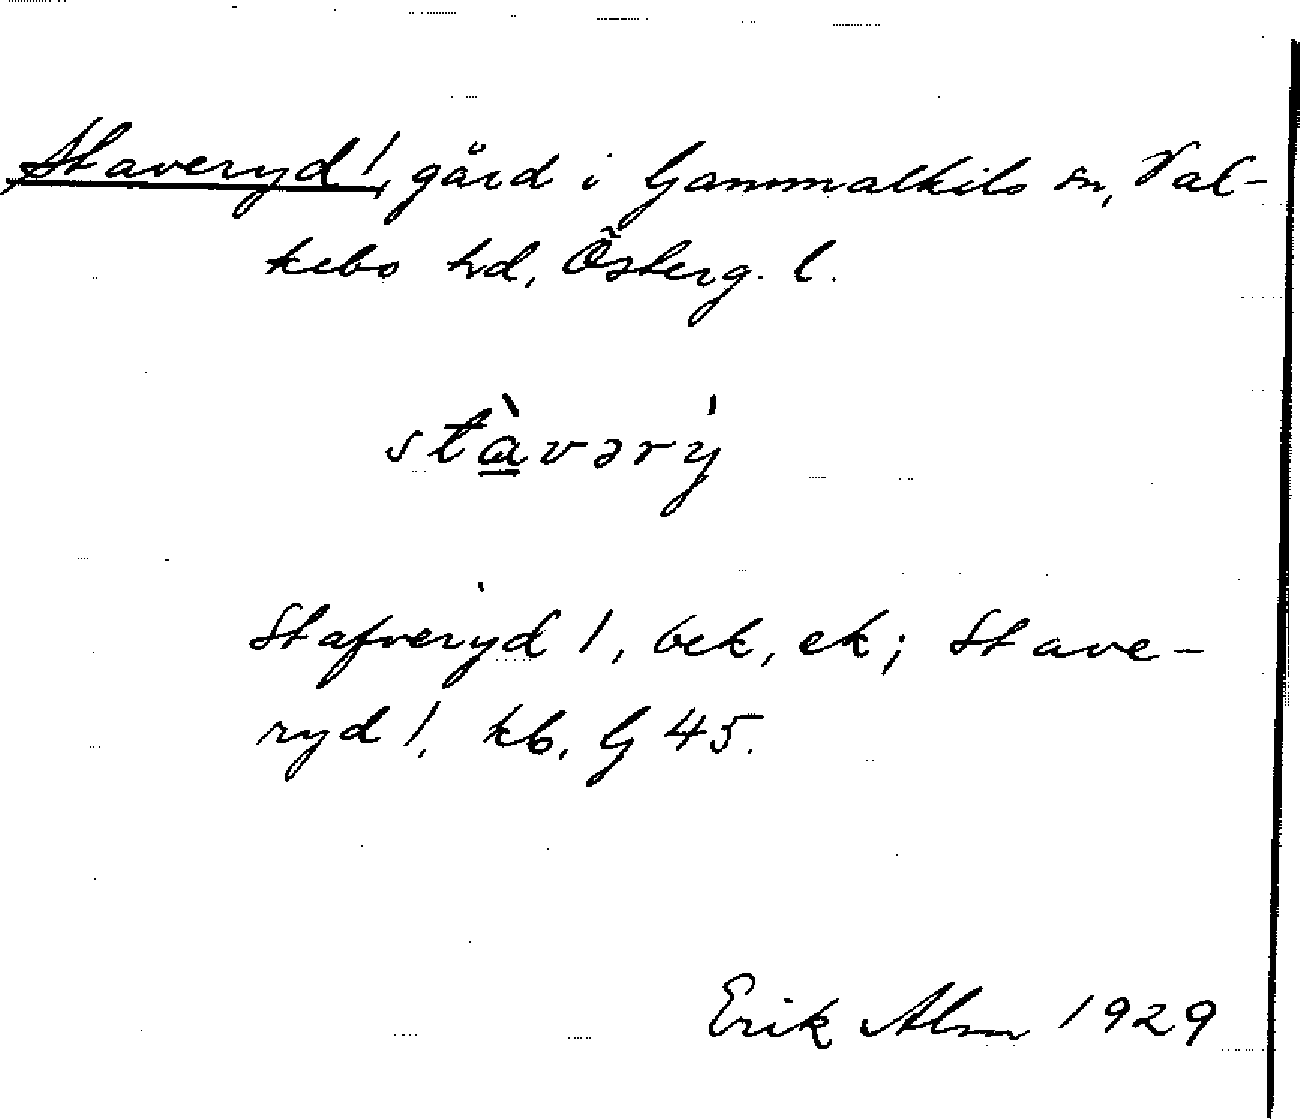 Staveryd 1, gård i Gammalkils sn, Val-
kebo hd, Österg. l.
stàvərý
Stafveryd 1, bek, ek; Stave-
ryd 1, kb, G 45.
Erik Alm 1929